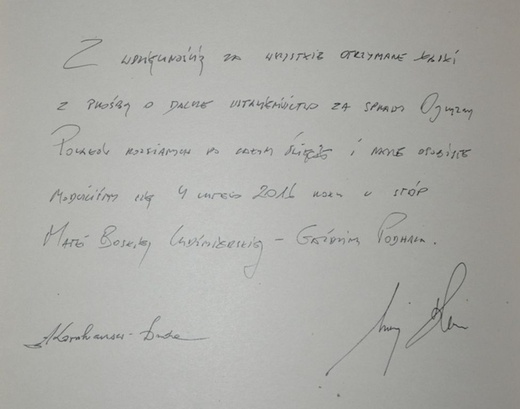 Z wdzięcznością za wszystkie otrzymane łaski
z prośbą o dalsze wstawiennictwo za sprawy Ojczyzny
Polaków rozsianych po całym świecie i nasze osobiste
modliliśmy się 4 lutego 2016 roku u stóp
Matki Boskiej Ludźmierskiej – Gaździny Podhala.
AKornhauser-Duda